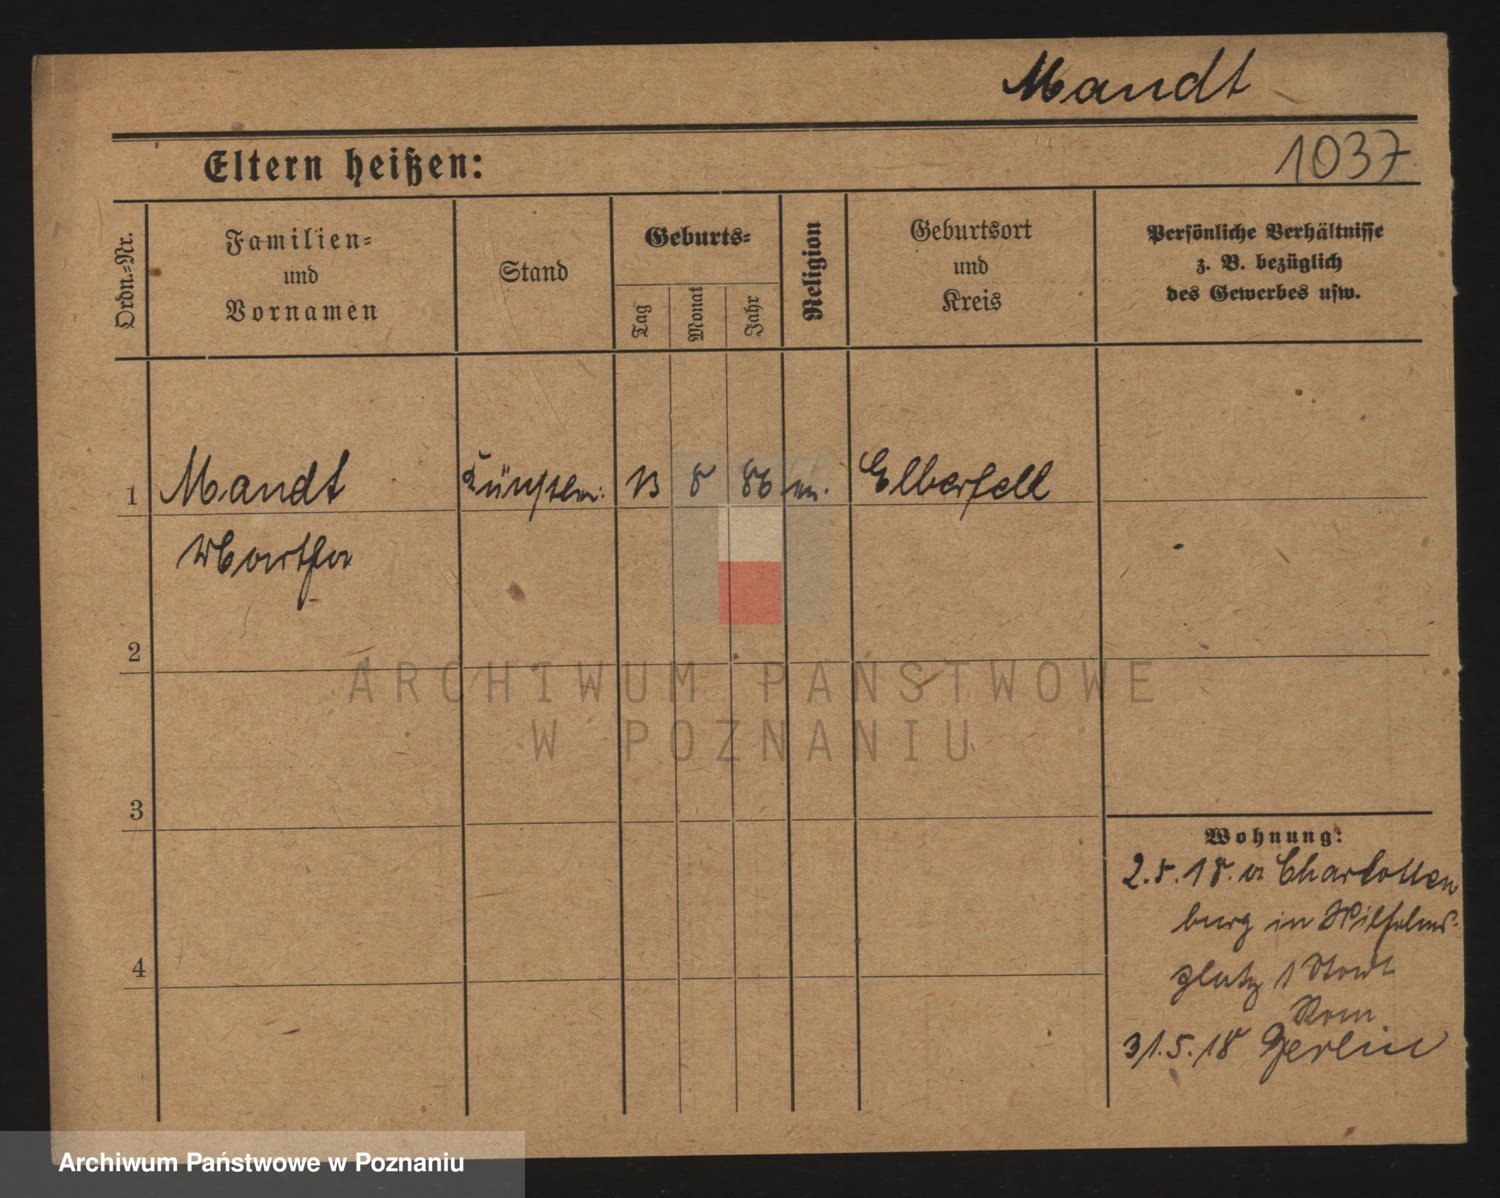 Mandt
1037
Eltern heißen:
Ordn.-Nr.
Familien-
und
Vornamen
Stand
Geburts-
Tag
Monat
Jahr
Religion
Geburtsort
und
Kreis
Persönliche Verhältnisse
z. B. bezüglich
des Gewerbes usw.
1 Mandt Künstler. 13 8 86 Elberfell
Martha
2
3
4
Wohnung:
2.5.18. a Charlotten
burg in Wilhelms-
platz 1 Stadt
Rom
31.5.18 Berlin
ARCHIWUM PAŃSTWOWE
W POZNANIU
Archiwum Państwowe w Poznaniu